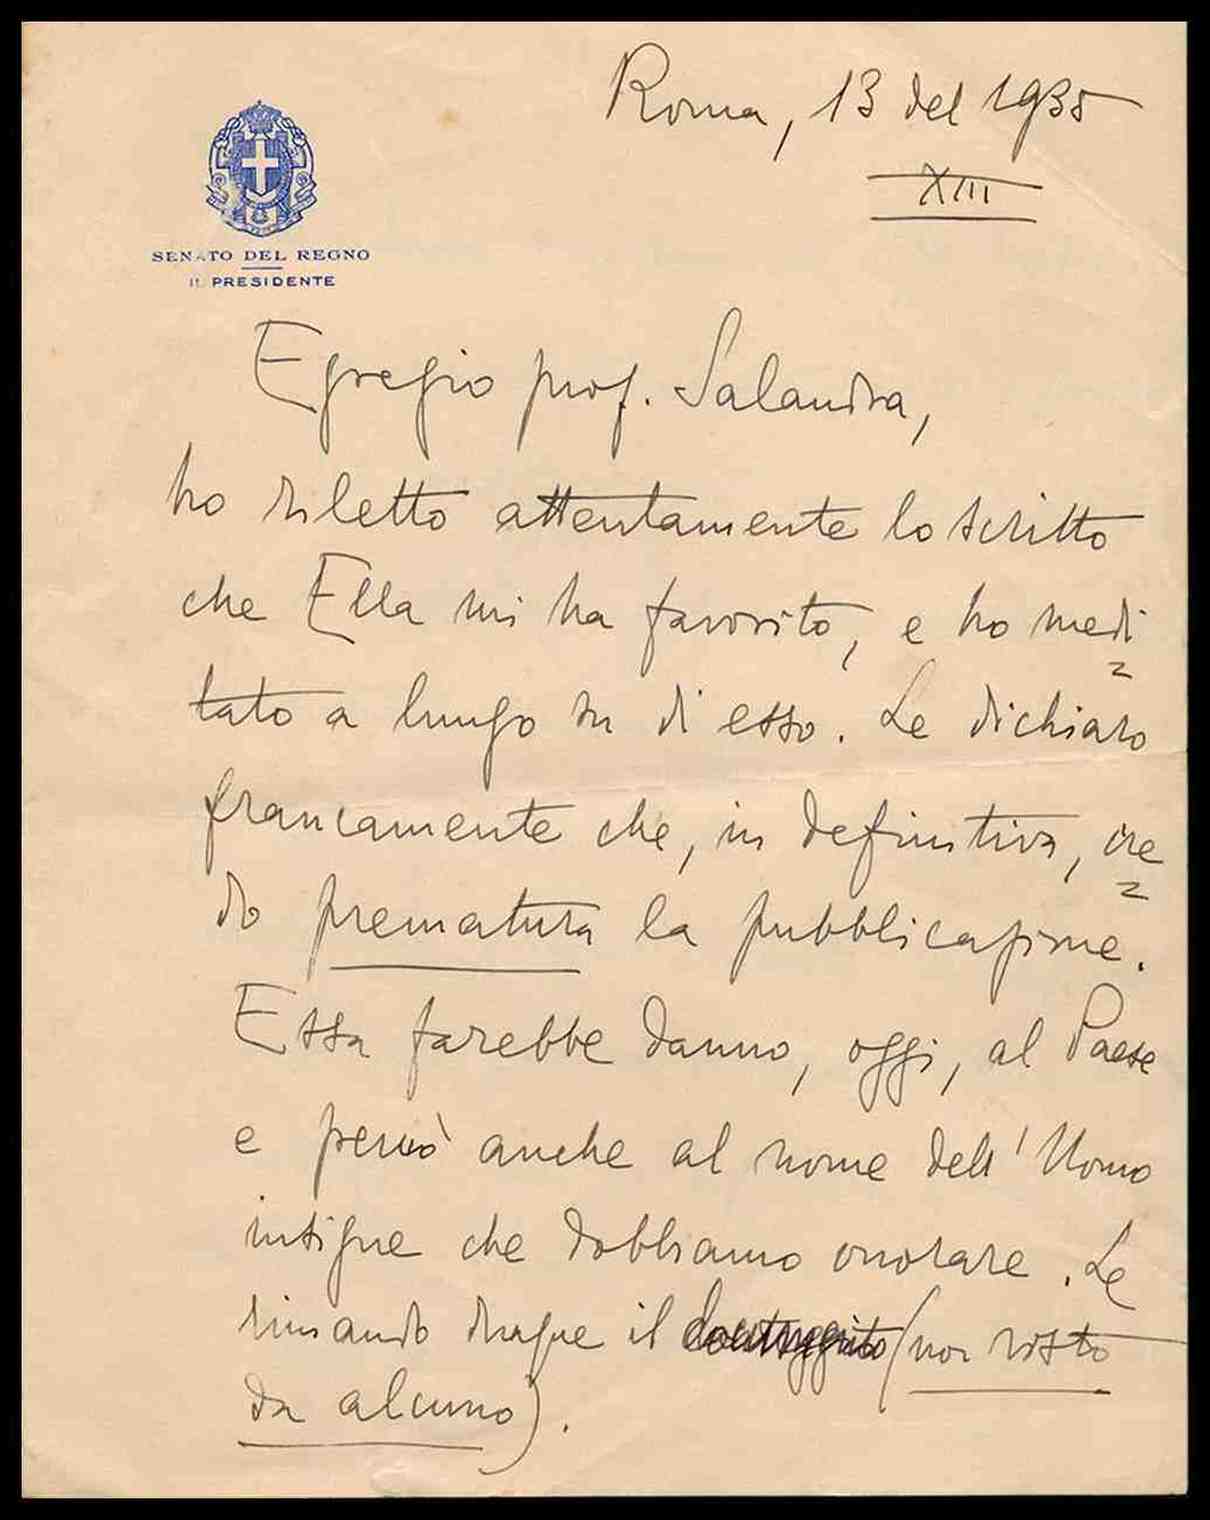 Roma, 13 del 1935
XIII
SENATO DEL REGNO
IL PRESIDENTE
Egregio prof. Salandra,
ho riletto attentamente lo scritto
che Ella mi ha favorito, e ho medi=
tato a lungo su di esso. Le dichiaro
francamente che, in definitiva, cre=
do prematura la pubblicazione.
Essa farebbe danno, oggi, al Paese
e perciò anche al nome dell'Uomo
insigne che dobbiamo onorare. Le
rimando dunque il (non visto
da alcuno).